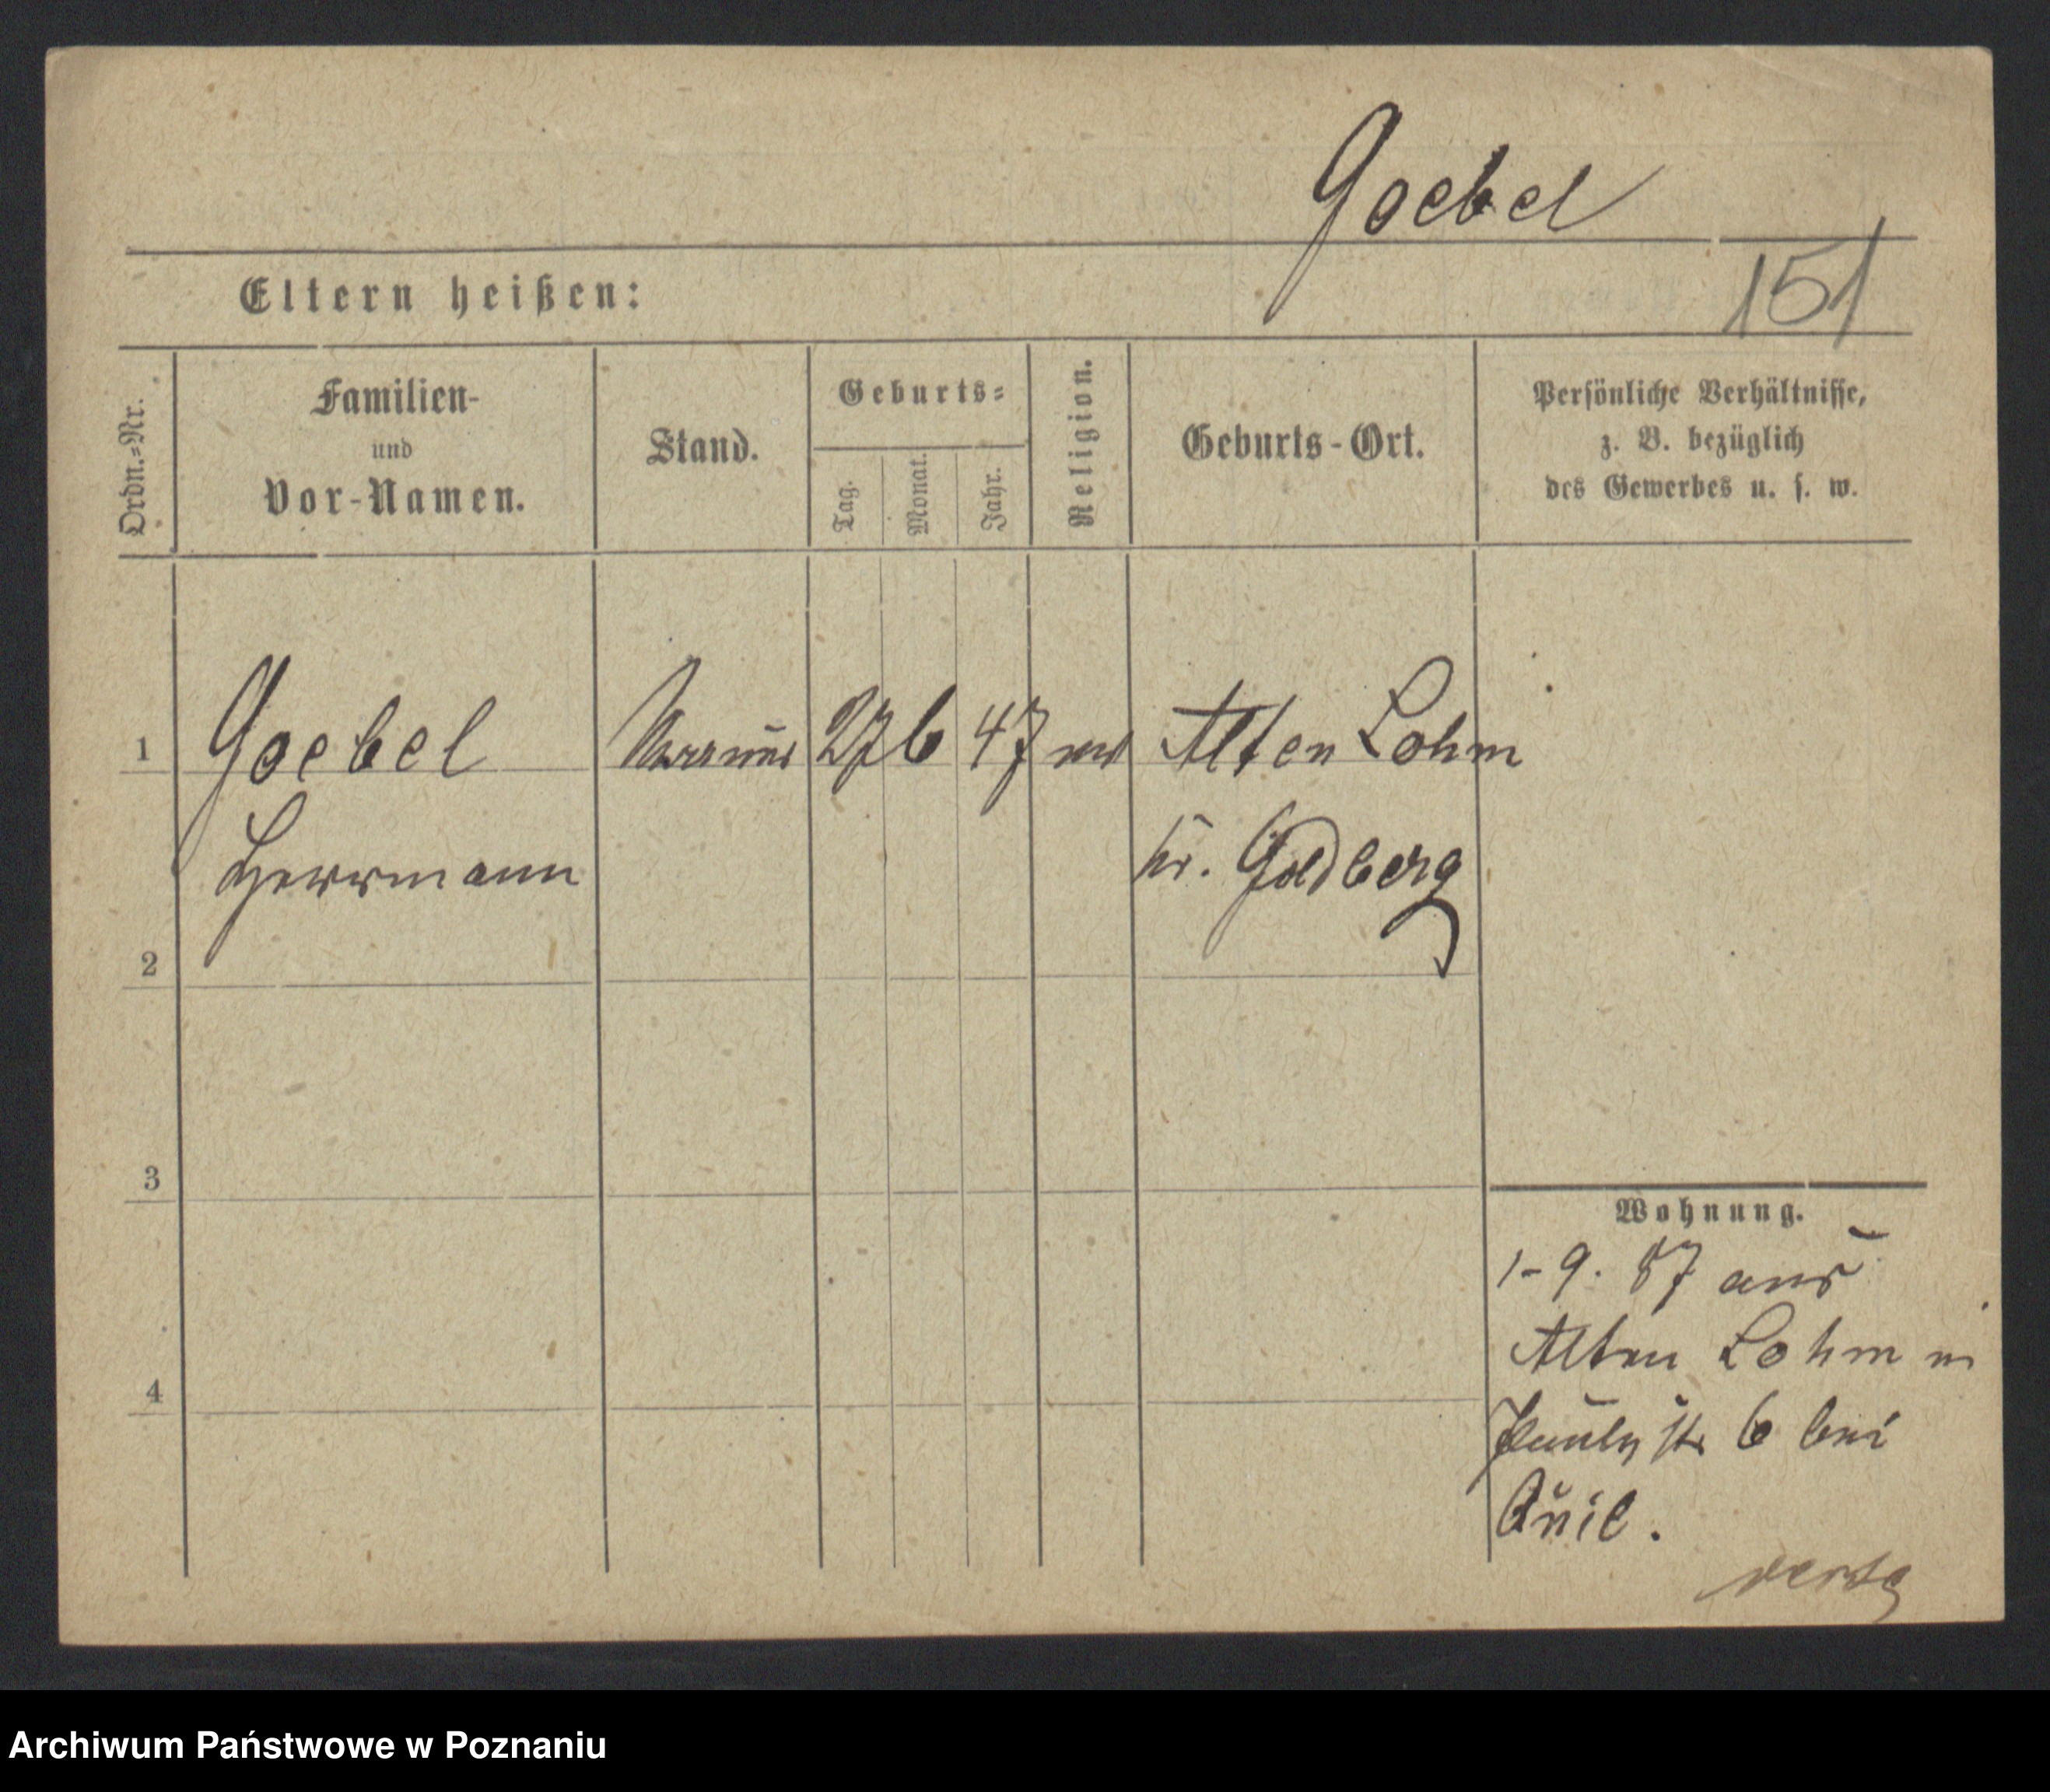 Goebel
151
Eltern heißen:
Ordn.-Nr.
Familien-
und
Vor-Namen.
Stand.
Geburts-
Tag.
Monat.
Jahr.
Religion.
Geburts-Ort.
Persönliche Verhältnisse,
z. B. bezüglich
des Gewerbes u. s. w.
1 Goebel 27 6 47 ev Alten Lohm
Herrmann Kr. Goldberg
2
3
4
Wohnung.
1-9. 87 aus
Alten Lohm n
Pauly str 6 bei
Quil.
Archiwum Państwowe w Poznaniu